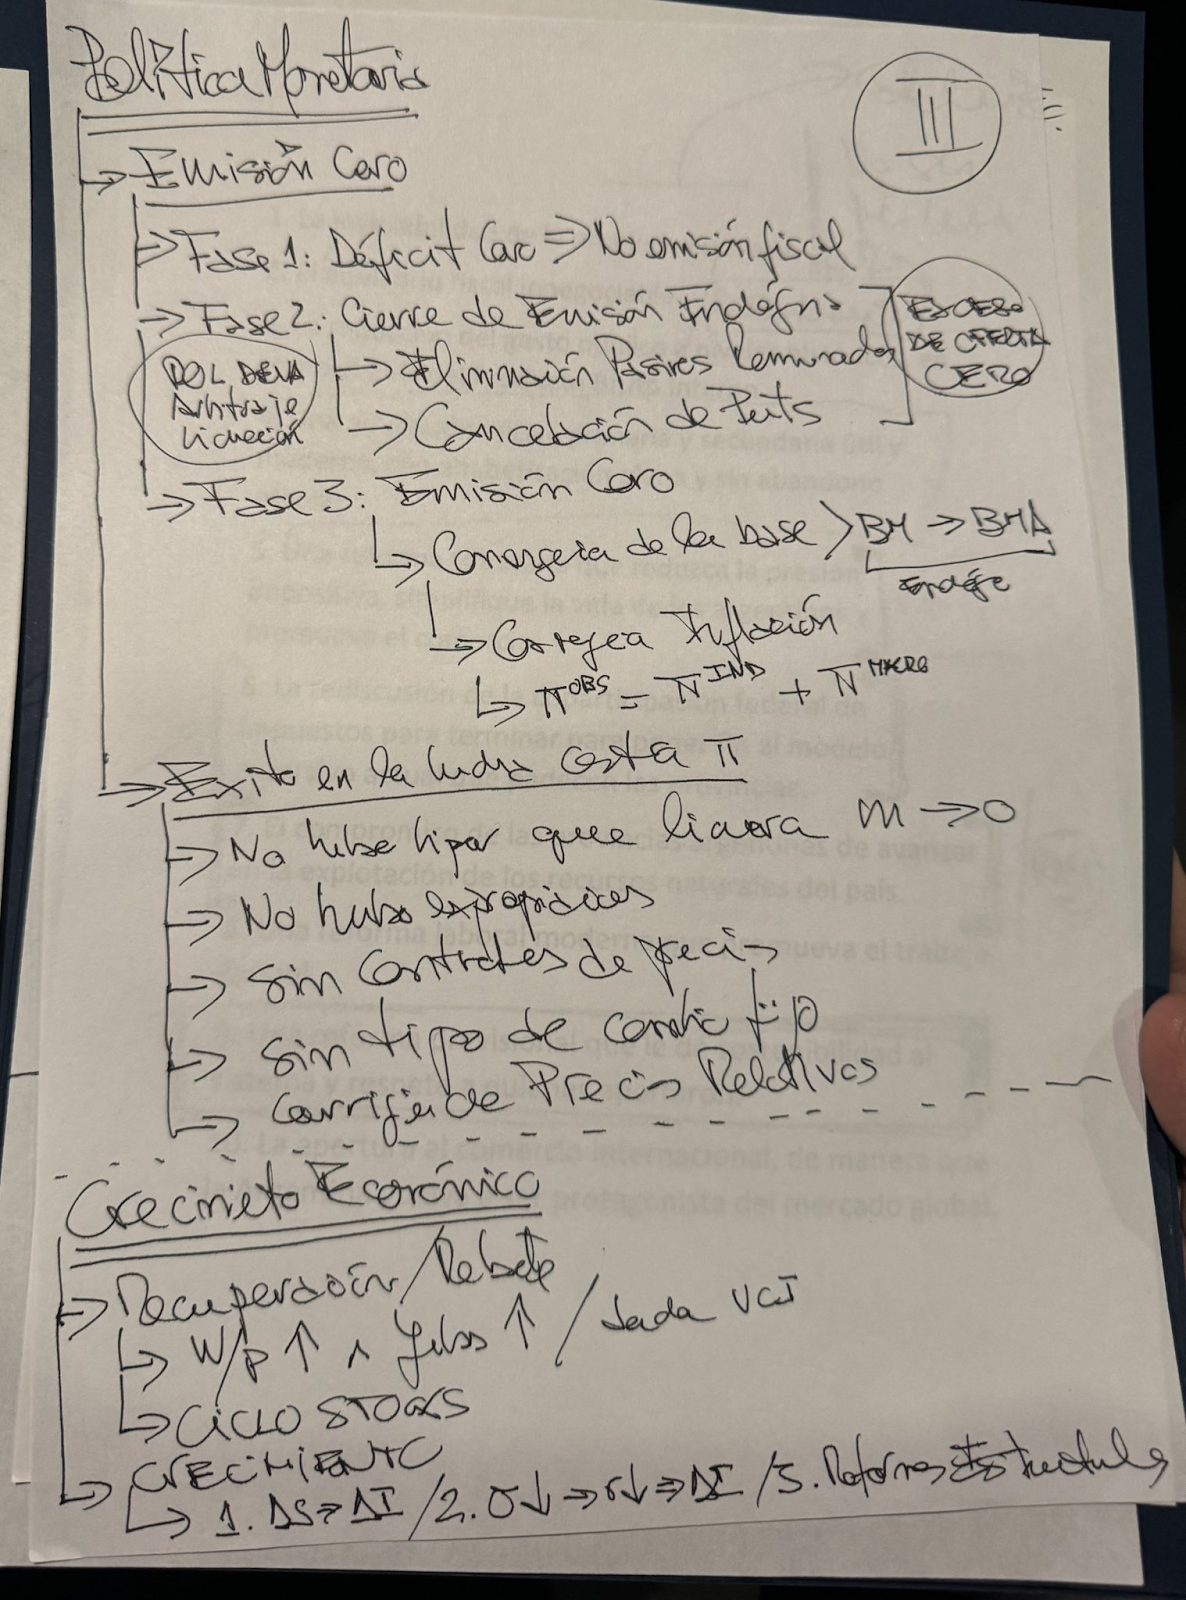 Política Monetaria
III
→ Emisión Cero
→ Fase 1: Déficit Cero ⇒ No emisión fiscal
→ Fase 2: Cierre de Emisión Endógena
→ Eliminación Pasivos Remunerados
→ Cancelación de Puts
EXCESO
DE OFERTA
CERO
POL DEVA
Arbitraje
Licuación
→ Fase 3: Emisión Cero
→ Convergencia de la base > BM → BMA
Endóg
→ Convergencia Inflación
→ π^OBS = π^IND + π^MACRO
→ Éxito en la lucha contra π
→ No hubo hiper que licuara m → 0
→ No hubo expropiaciones
→ Sin Controles de precios
→ Sin tipo de cambio fijo
→ Corrigiendo Precios Relativos
Crecimiento Económico
→ Recuperación / Rebote
→ W/P ↑ ∧ Jubs ↑ /
→ CICLO STOCKS
→ CRECIMIENTO
→ 1. ΔS ⇒ ΔI / 2. σ↓ → r↓ ⇒ ΔI / 3. Reformas Estructurales